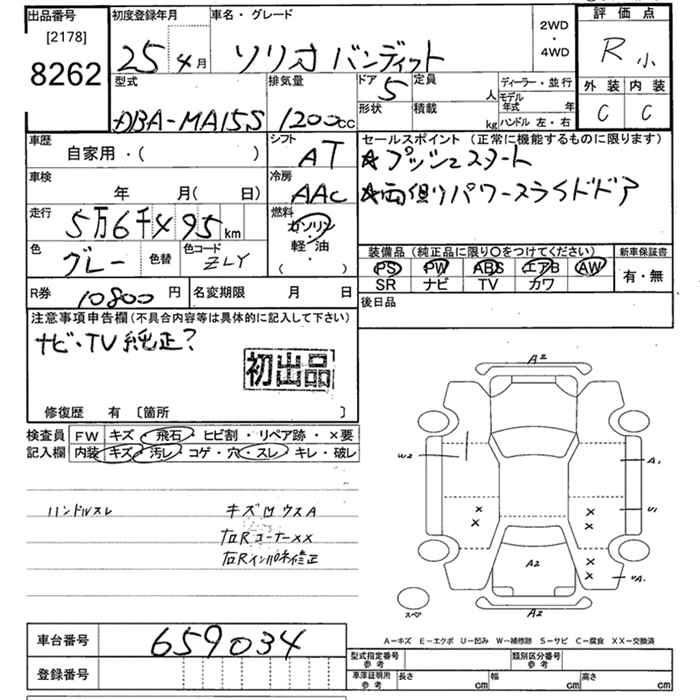 出品番号 初度登録年月 車名・グレード 2WD ・ 4WD 評価点
[2178]
8262 25年4月 ソリオ バンディット R小
型式 排気量 ドア 5 定員 人 ディーラー・並行 外装 内装
DBA-MA15S 1200cc 形状 積載 kg モデル年式 年 C C
ハンドル 左・右
車歴 シフト セールスポイント (正常に機能するものに限ります)
自家用・( ) AT ☆プッシュスタート
車検 冷房
年 月( 日) AAC ☆両側パワースライドドア
走行 5万6千495km 燃料 ガソリン
色 グレー 色替 色コード ZLY 軽・油
( )
装備品 (純正品に限り○をつけてください) 新車保証書
PS PW ABS エアB AW 有・無
SR ナビ TV カワ
R券 10800円 名変期限 月 日 後日品
注意事項申告欄(不具合内容等は具体的に記入して下さい)
ナビ・TV純正?
初出品
修復歴 有 〔箇所 〕
検査員 FW キズ・飛石・ヒビ割・リペア跡・×要
記入欄 内装 キズ・汚レ・コゲ・穴・スレ・キレ・破レ
ハンドルスレ キズ凹ウスA
右Rコーナー××
右Rインパネ修正
A2
W2
A1
U1
A2
UA1
スペア
A2
A−キズ E−エクボ U−凹み W−補修跡 S−サビ C−腐食 XX−交換済
車台番号 659034
登録番号
型式指定番号 参考 類別区分番号 参考
車庫証明所 参考 長さ cm 幅 cm 高さ cm